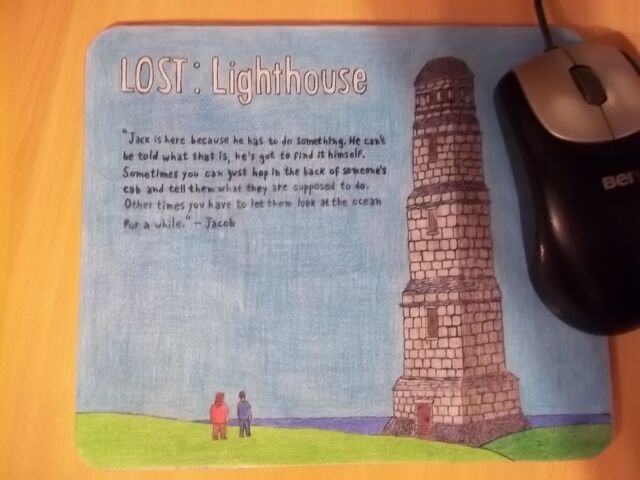 LOST: Lighthouse
"Jack is here because he has to do something. He can't
be told what that is, he's got to find it himself.
Sometimes you can just hop in the back of someone's
cab and tell them what they are supposed to do.
Other times you have to let them look at the ocean
for a while." — Jacob